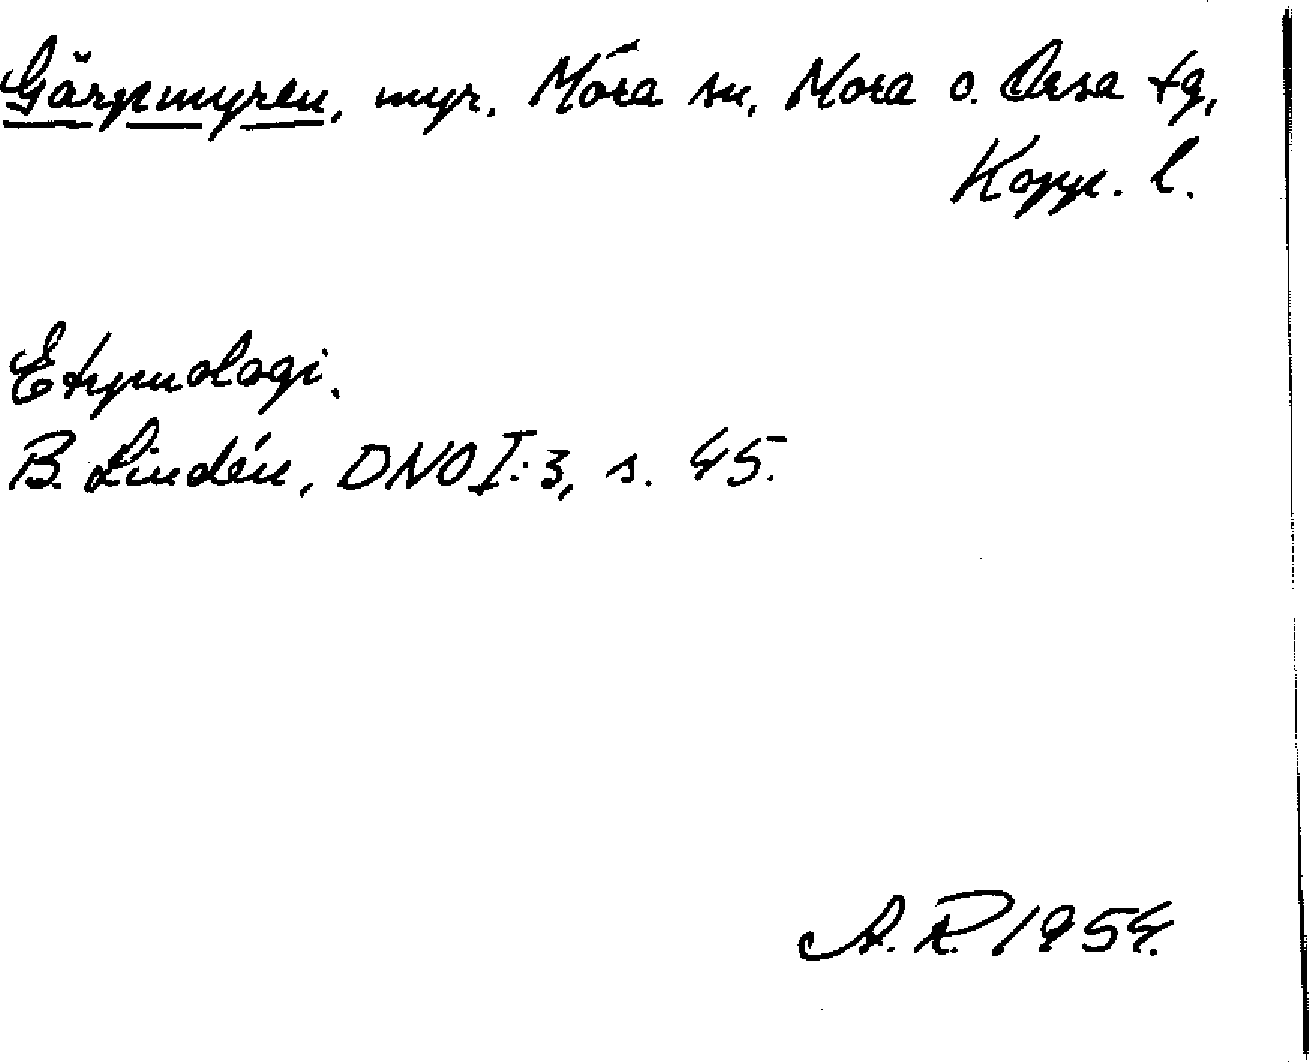 Gärpmyren, myr. Mora sn, Mora o. Orsa tg,
Kopp. l.
Etymologi.
B. Lindén, DNO I:3, s. 45.
A.R. 1954.